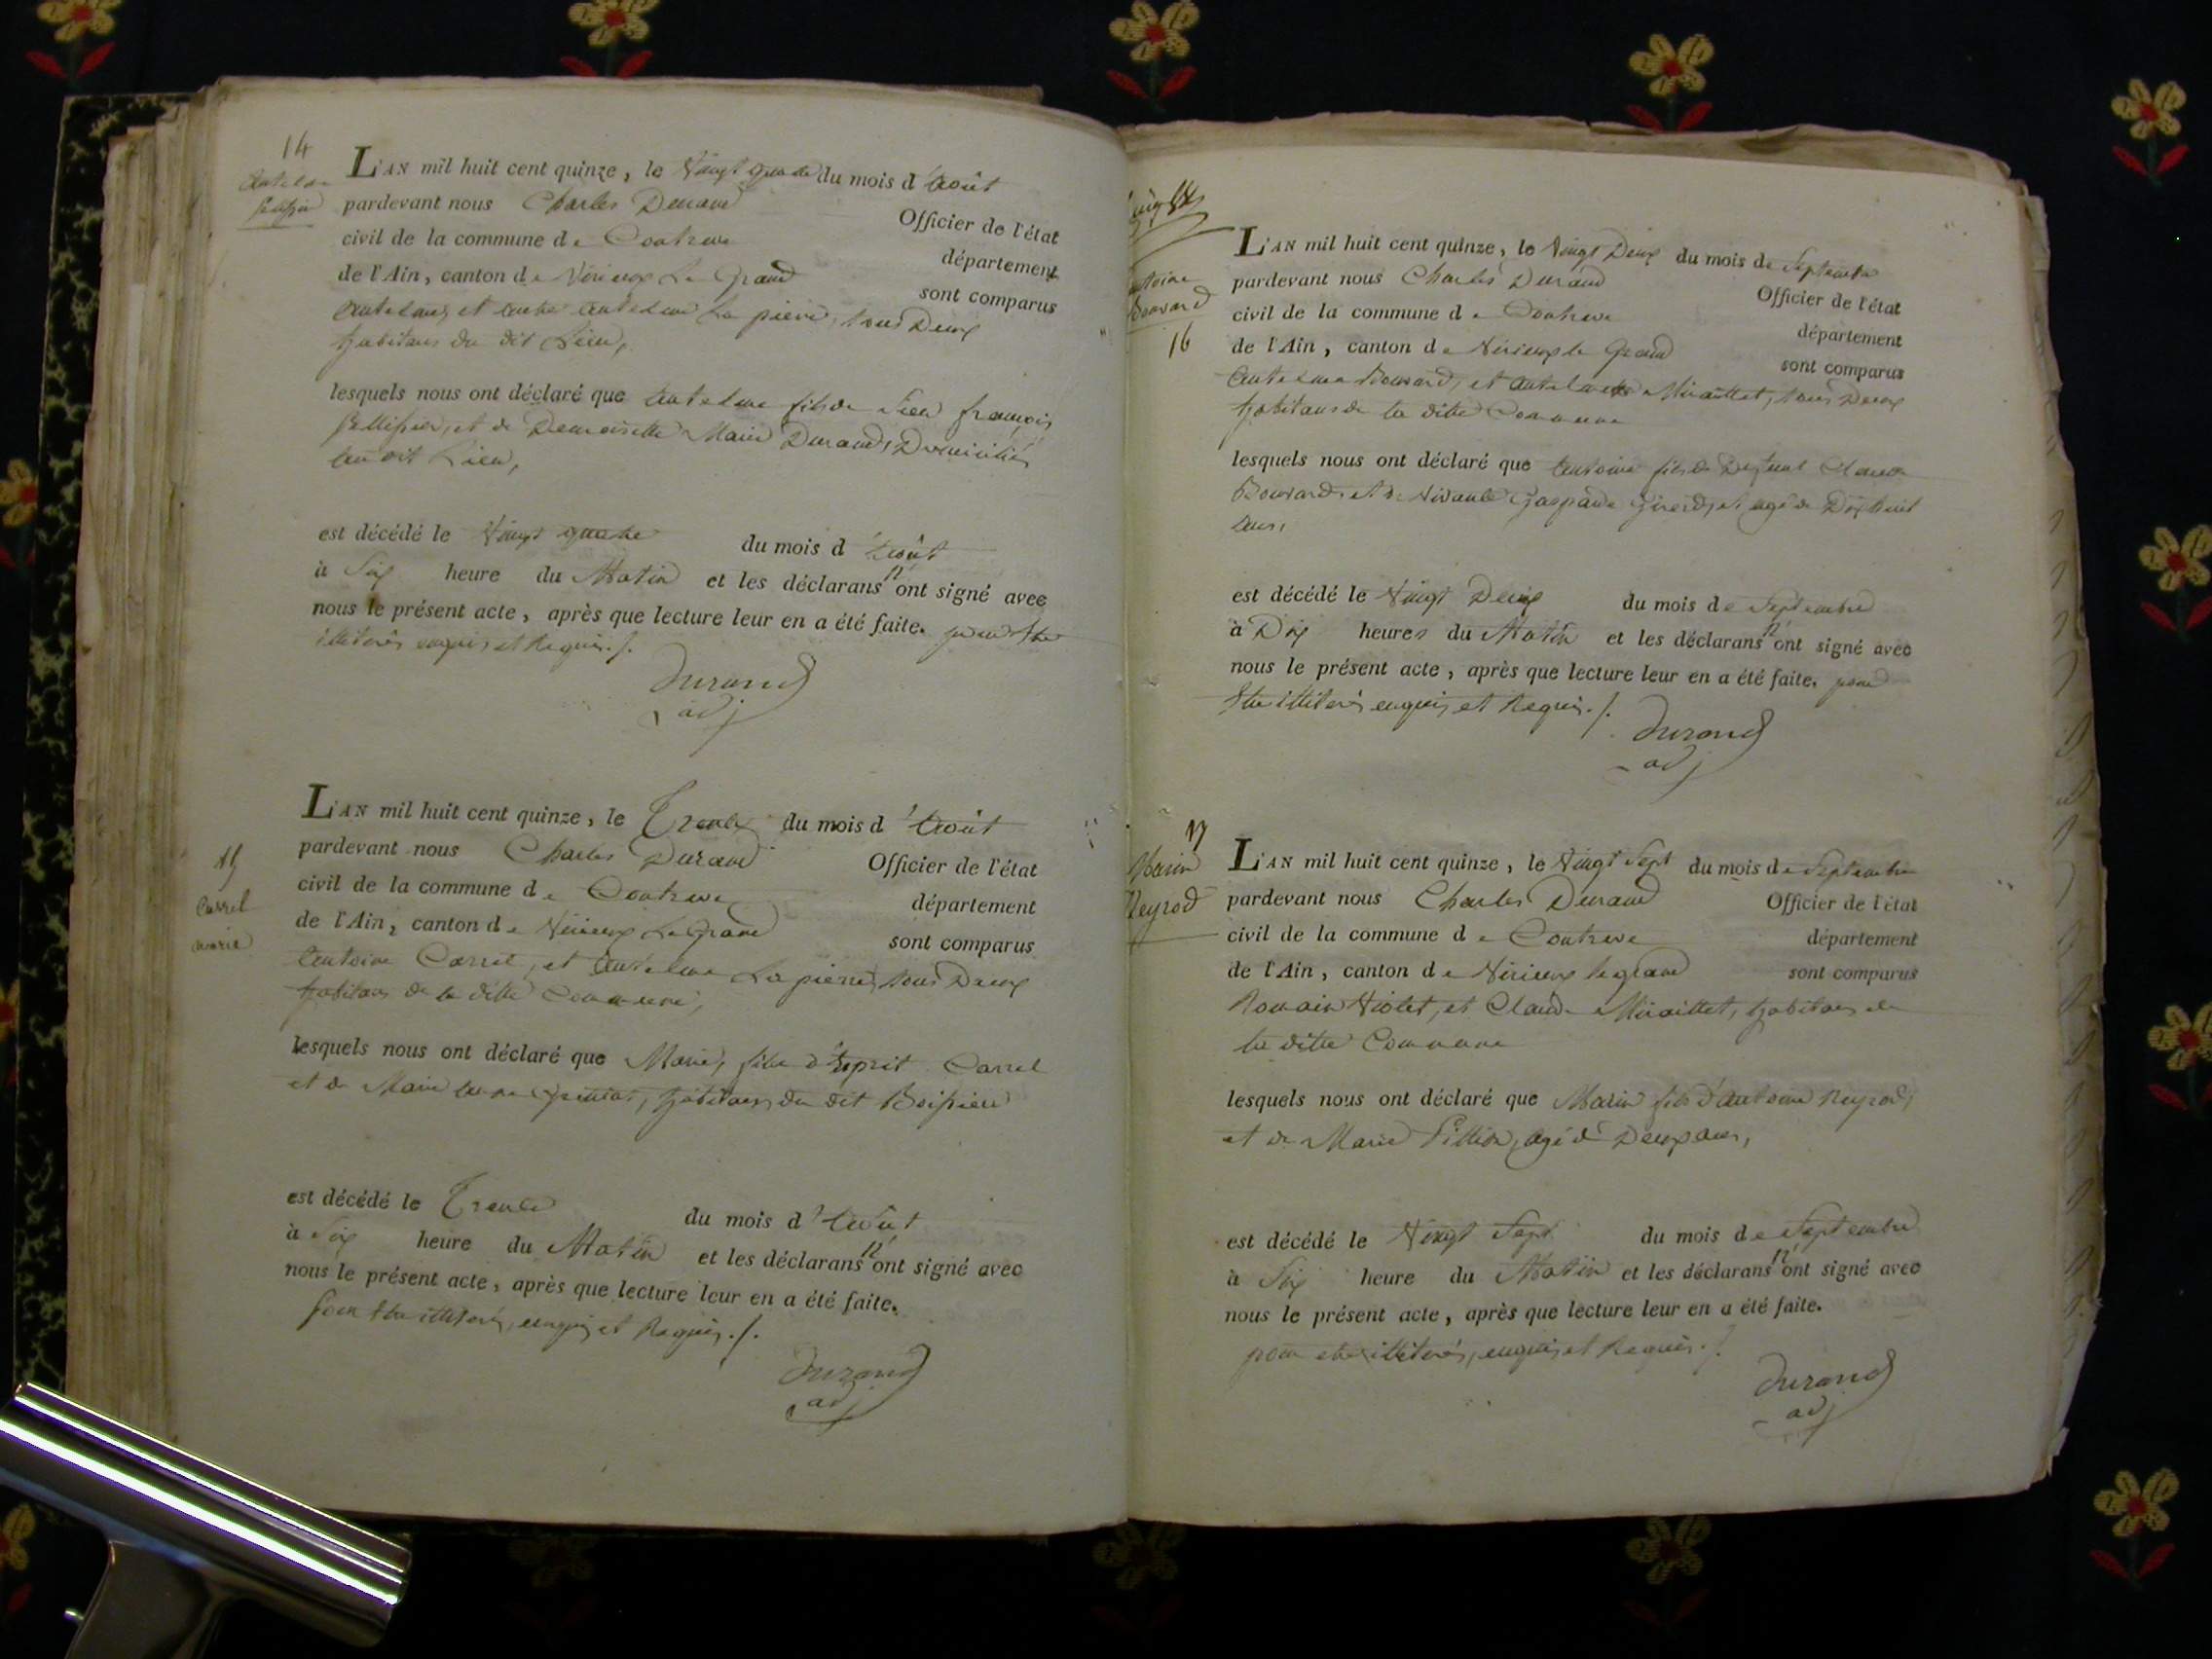 14
L'AN mil huit cent quinze, le Vingt quatre du mois d'Août
pardevant nous Charles Durand
Officier de l'état
civil de la commune de Contrevoz
département
de l'Ain, canton de Virieux Le Grand
sont comparus
Antelme La pierre, tous Deux
habitans du dit Lieu,
lesquels nous ont déclaré que Antelme fils de Sieur françois
Pellissier, et de Demoiselle Marie Durand, Domiciliés
au dit Lieu,
est décédé le Vingt quatre du mois d'Août
à Six heure du Matin et les déclarans n'ont signé avec
nous le présent acte, après que lecture leur en a été faite. pour être
illiterés enquis et Requis./.
Durand
adj
15
Carrel
marie
L'AN mil huit cent quinze, le Trente du mois d'Août
pardevant nous Charles Durand
Officier de l'état
civil de la commune de Contrevoz
département
de l'Ain, canton de Virieux Le Grand
sont comparus
Antoine Carrel, et Antelme La pierre, tous Deux
habitans de la ditte Commune,
lesquels nous ont déclaré que Marie, fille d'Esprit Carrel
et de Marie habitans du dit Boissieu
est décédé le Trente du mois d'Août
à Six heure du Matin et les déclarans n'ont signé avec
nous le présent acte, après que lecture leur en a été faite.
pour être illiterés, enquis et Requis./.
Durand
adj
Antoine
Bouvard
16
L'AN mil huit cent quinze, le Vingt Deux du mois de Septembre
pardevant nous Charles Durand
Officier de l'état
civil de la commune de Contrevoz
département
de l'Ain, canton de Virieux le Grand
sont comparus
Antelme Bouvard, et Antelme Miraillet, tous Deux
habitans de la ditte Commune
lesquels nous ont déclaré que Antoine fils de Defunt Claude
Bouvard, et de Vivante Gasparde Girerd, et agé de Dix huit
ans,
est décédé le Vingt Deux du mois de Septembre
à Dix heures du Matin et les déclarans n'ont signé avec
nous le présent acte, après que lecture leur en a été faite. pour
être illiterés enquis et Requis./.
Durand
adj
17
Marin
Reyrod
L'AN mil huit cent quinze, le Vingt Sept du mois de Septembre
pardevant nous Charles Durand
Officier de l'état
civil de la commune de Contrevoz
département
de l'Ain, canton de Virieux le grand
sont comparus
Romain Violet, et Claude Miraillet, habitans de
la ditte Commune
lesquels nous ont déclaré que Marin fils d'Antoine Reyrod,
et de Marie Pillion, agé de Deux ans,
est décédé le Vingt Sept du mois de Septembre
à Six heure du Matin et les déclarans n'ont signé avec
nous le présent acte, après que lecture leur en a été faite.
pour etre illiterés, enquis et Requis./.
Durand
adj